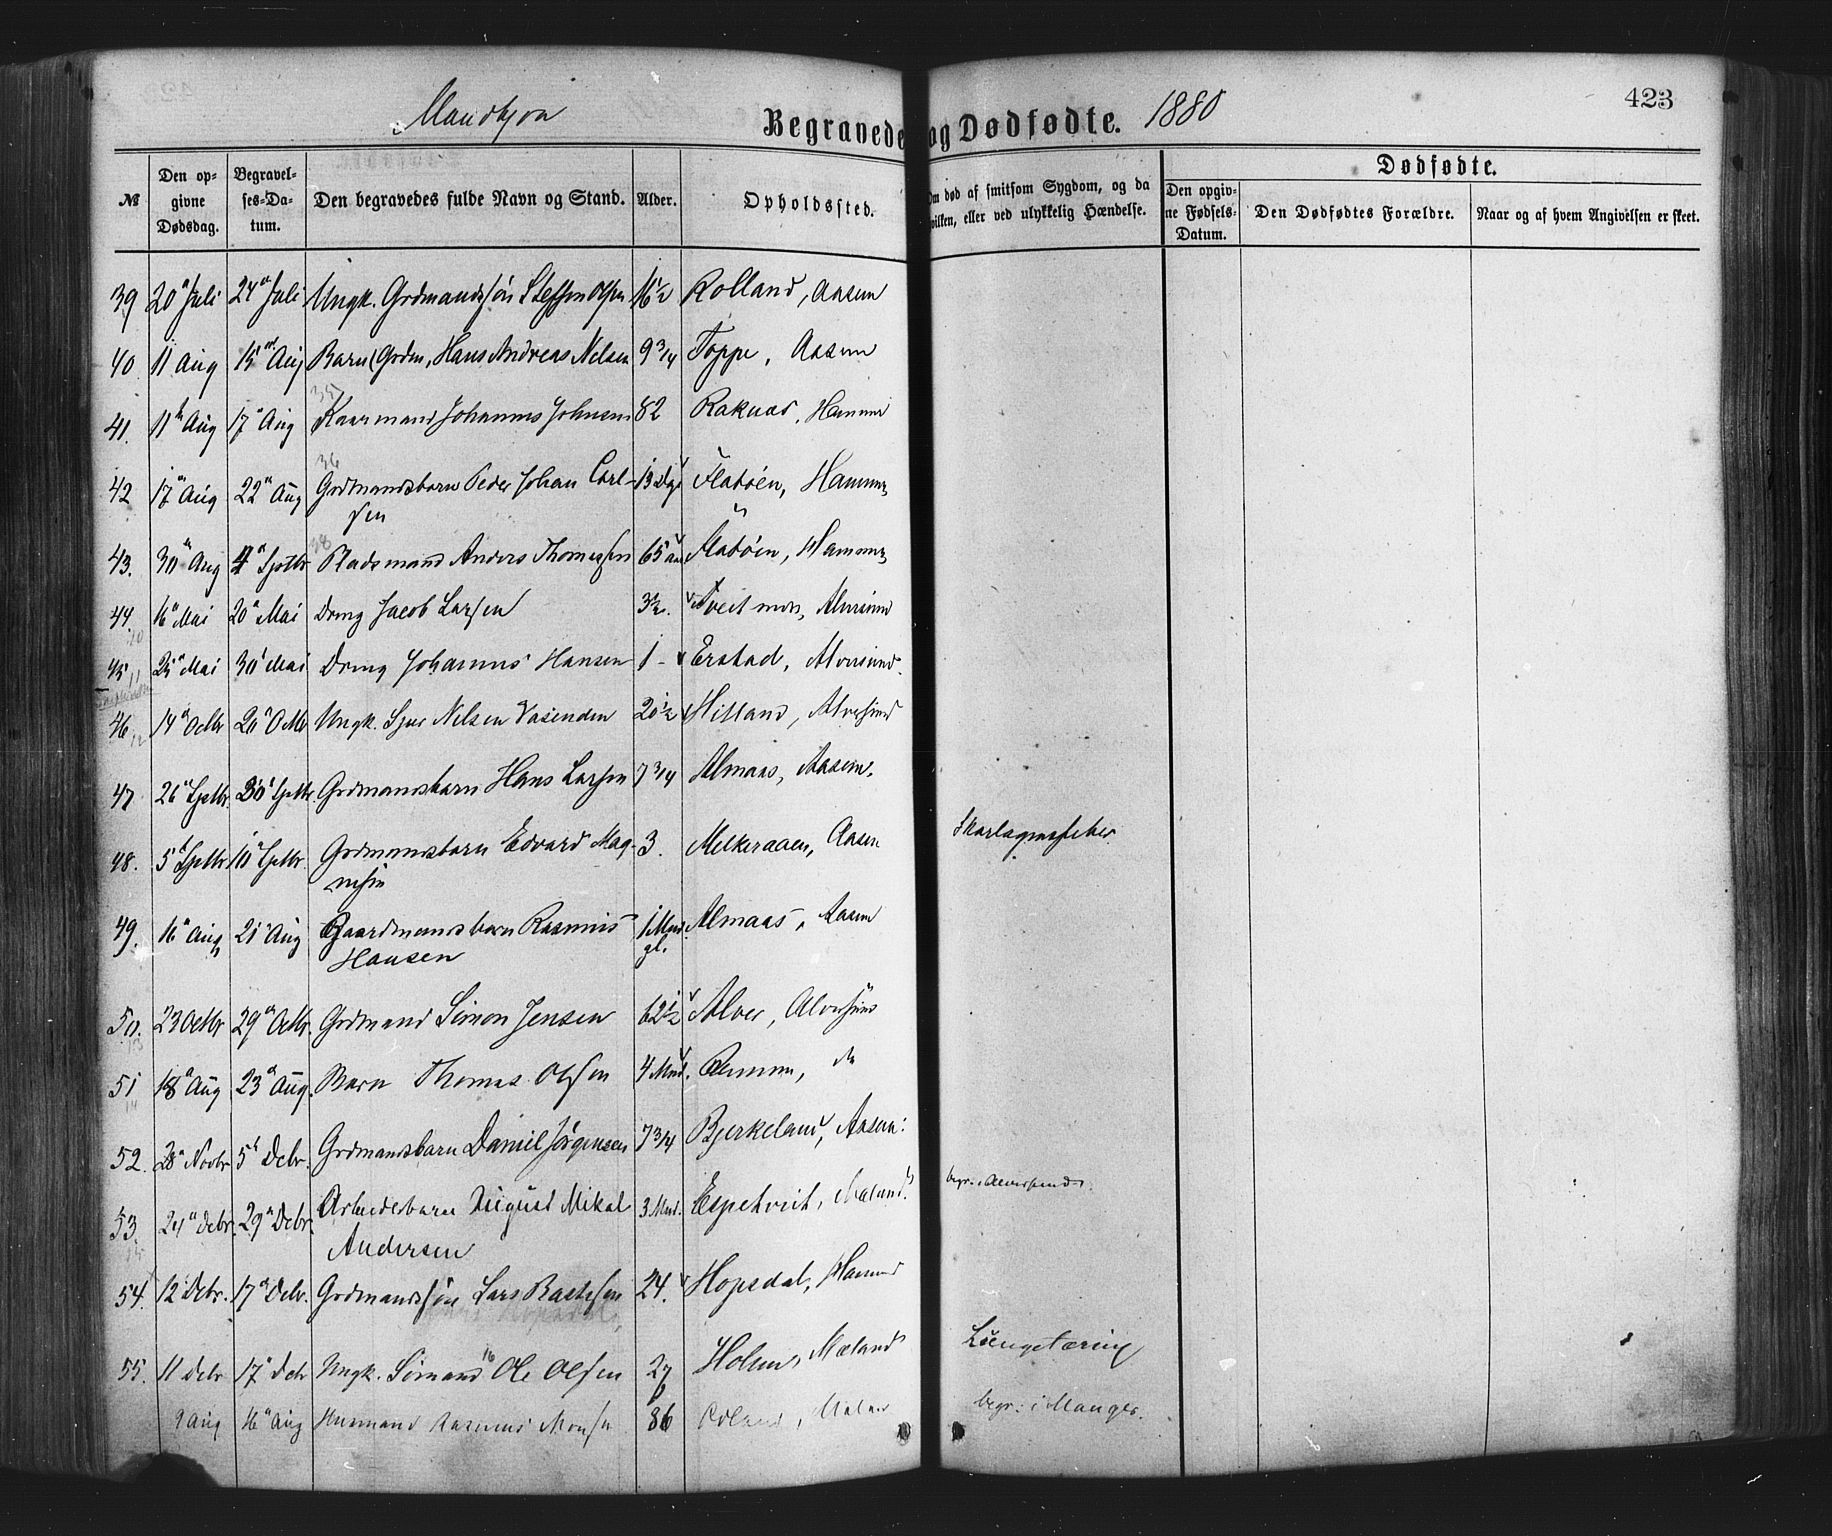 Mandkjøn
Begravede og Dødfødte. 1880
423
№
Den opgivne Dødsdag.
Begravelses-Datum.
Den begravedes fulde Navn og Stand.
Alder.
Opholdssted.
Om død af smitsom Sygdom, og da hvilken, eller ved ulykkelig Hændelse.
Dødfødte.
Den opgivne Fødsels-Datum.
Den Dødfødtes Forældre.
Naar og af hvem Angivelsen er skeet.
39 20 Juli 24 Juli Ungk. Grdmandssøn Steffen Olsen 16½ Rolland, Aasene
40 11 Aug 15 Aug Barn (Grdm, Hans Andreas Nelsen 9 3/4 Toppe, Aasene
35
41. 11 Aug 17 Aug Kaarmand Johannes Johnsen 82 Raknæs, Hammer
36
42 17 Aug 22 Aug Grdmandsbarn Peder Johan Carl-
sen 13 Dge Flatøen, Hammer
38
43. 30 Aug 4 Septbr Pladsmand Anders Thomassen 65 Aar Flatøen, Hammer
44. 16 Mai 20 Mai Dreng Jacob Larsen 3½. Tveit, Alversund
10
45 25 Mai 30 Mai Dreng Johannes Hansen 1 - Erstad, Alversund
11
46 14 Octbr 20 Octbr Ungk. Sjur Nelsen Vasenden 20½ Hilland, Alversund
12
47 26 Septbr. 30 Septbr. Grdmandsbarn Hans Larsen 7 3/4 Almaas, Aasene.
48. 5 Septbr 10 Septbr. Grdmandsbarn Edvard Mag-
nesen 3. Melkeraaen, Aasene Skarlagensfeber
49. 16 Aug 21 Aug Gaardmandsbarn Rasmus
Hansen 1 Mnd. gl. Almaas, Aasene
50. 23 Octbr 29 Octbr. Grdmand Simon Jensen 62½ Alver, Alversund
13
51 18 Aug 23 Aug. Barn Thomas Olsen 4 Mnd. do
14
52. 28 Novbr 5 Debr. Grdmandsbarn Daniel Jørgensen 7 3/4 Bjerkeland, Aasene
53. 24 Debr. 29 Debr. Arbeiderbarn August Mikal
Andersen 3 Mnd. Espetveit, Mæland begr. i Alversund
15
54. 12 Debr. 17 Debr. Grdmandssøn Lars Bastesen 24. Hopsdal, Hammer
55. 11 Debr 17 Debr Ungk. Sømand Ole Olsen 27 Holme, Mæland Lungetæring
16
9 Aug 16 Aug Husmand Rasmus Monsen 86 begr: i Manger.